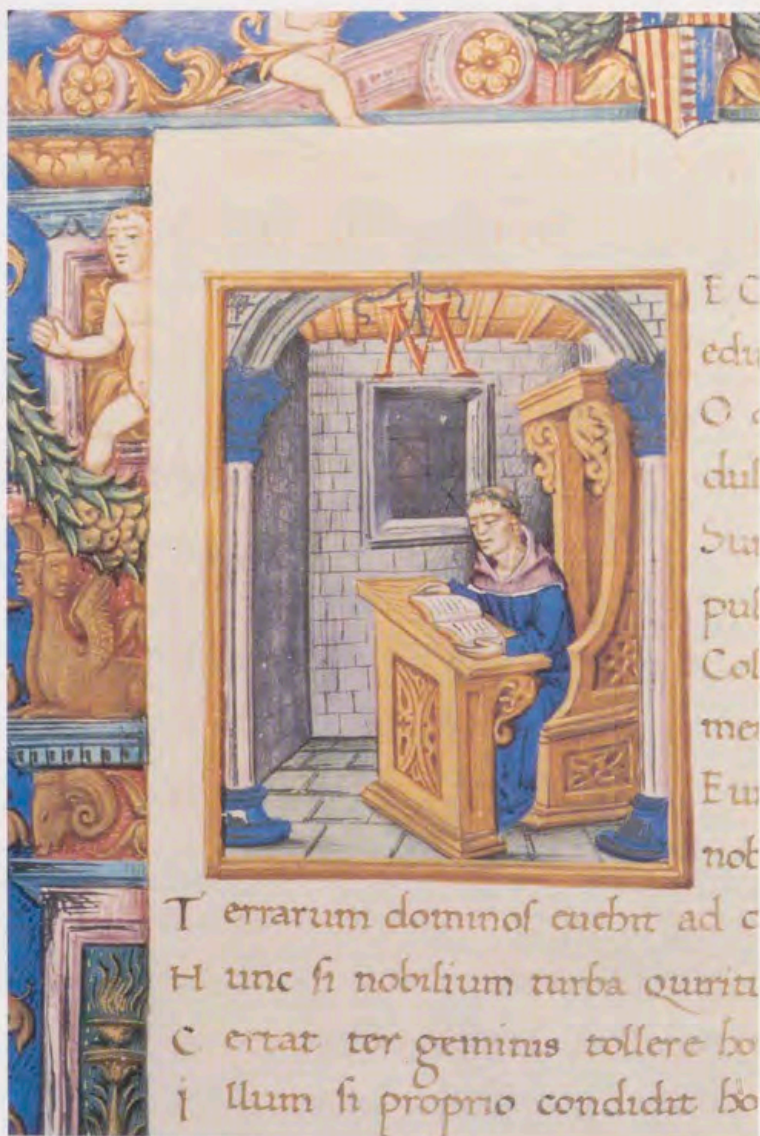 M
E C
edu
O
dus
Sun
pul
Col
me
Eu
nob
T errarum dominoſ euehit ad c
H unc ſi nobilium turba quiriti
C ertat ter geminis tollere ho
i llum ſi proprio condidit ho